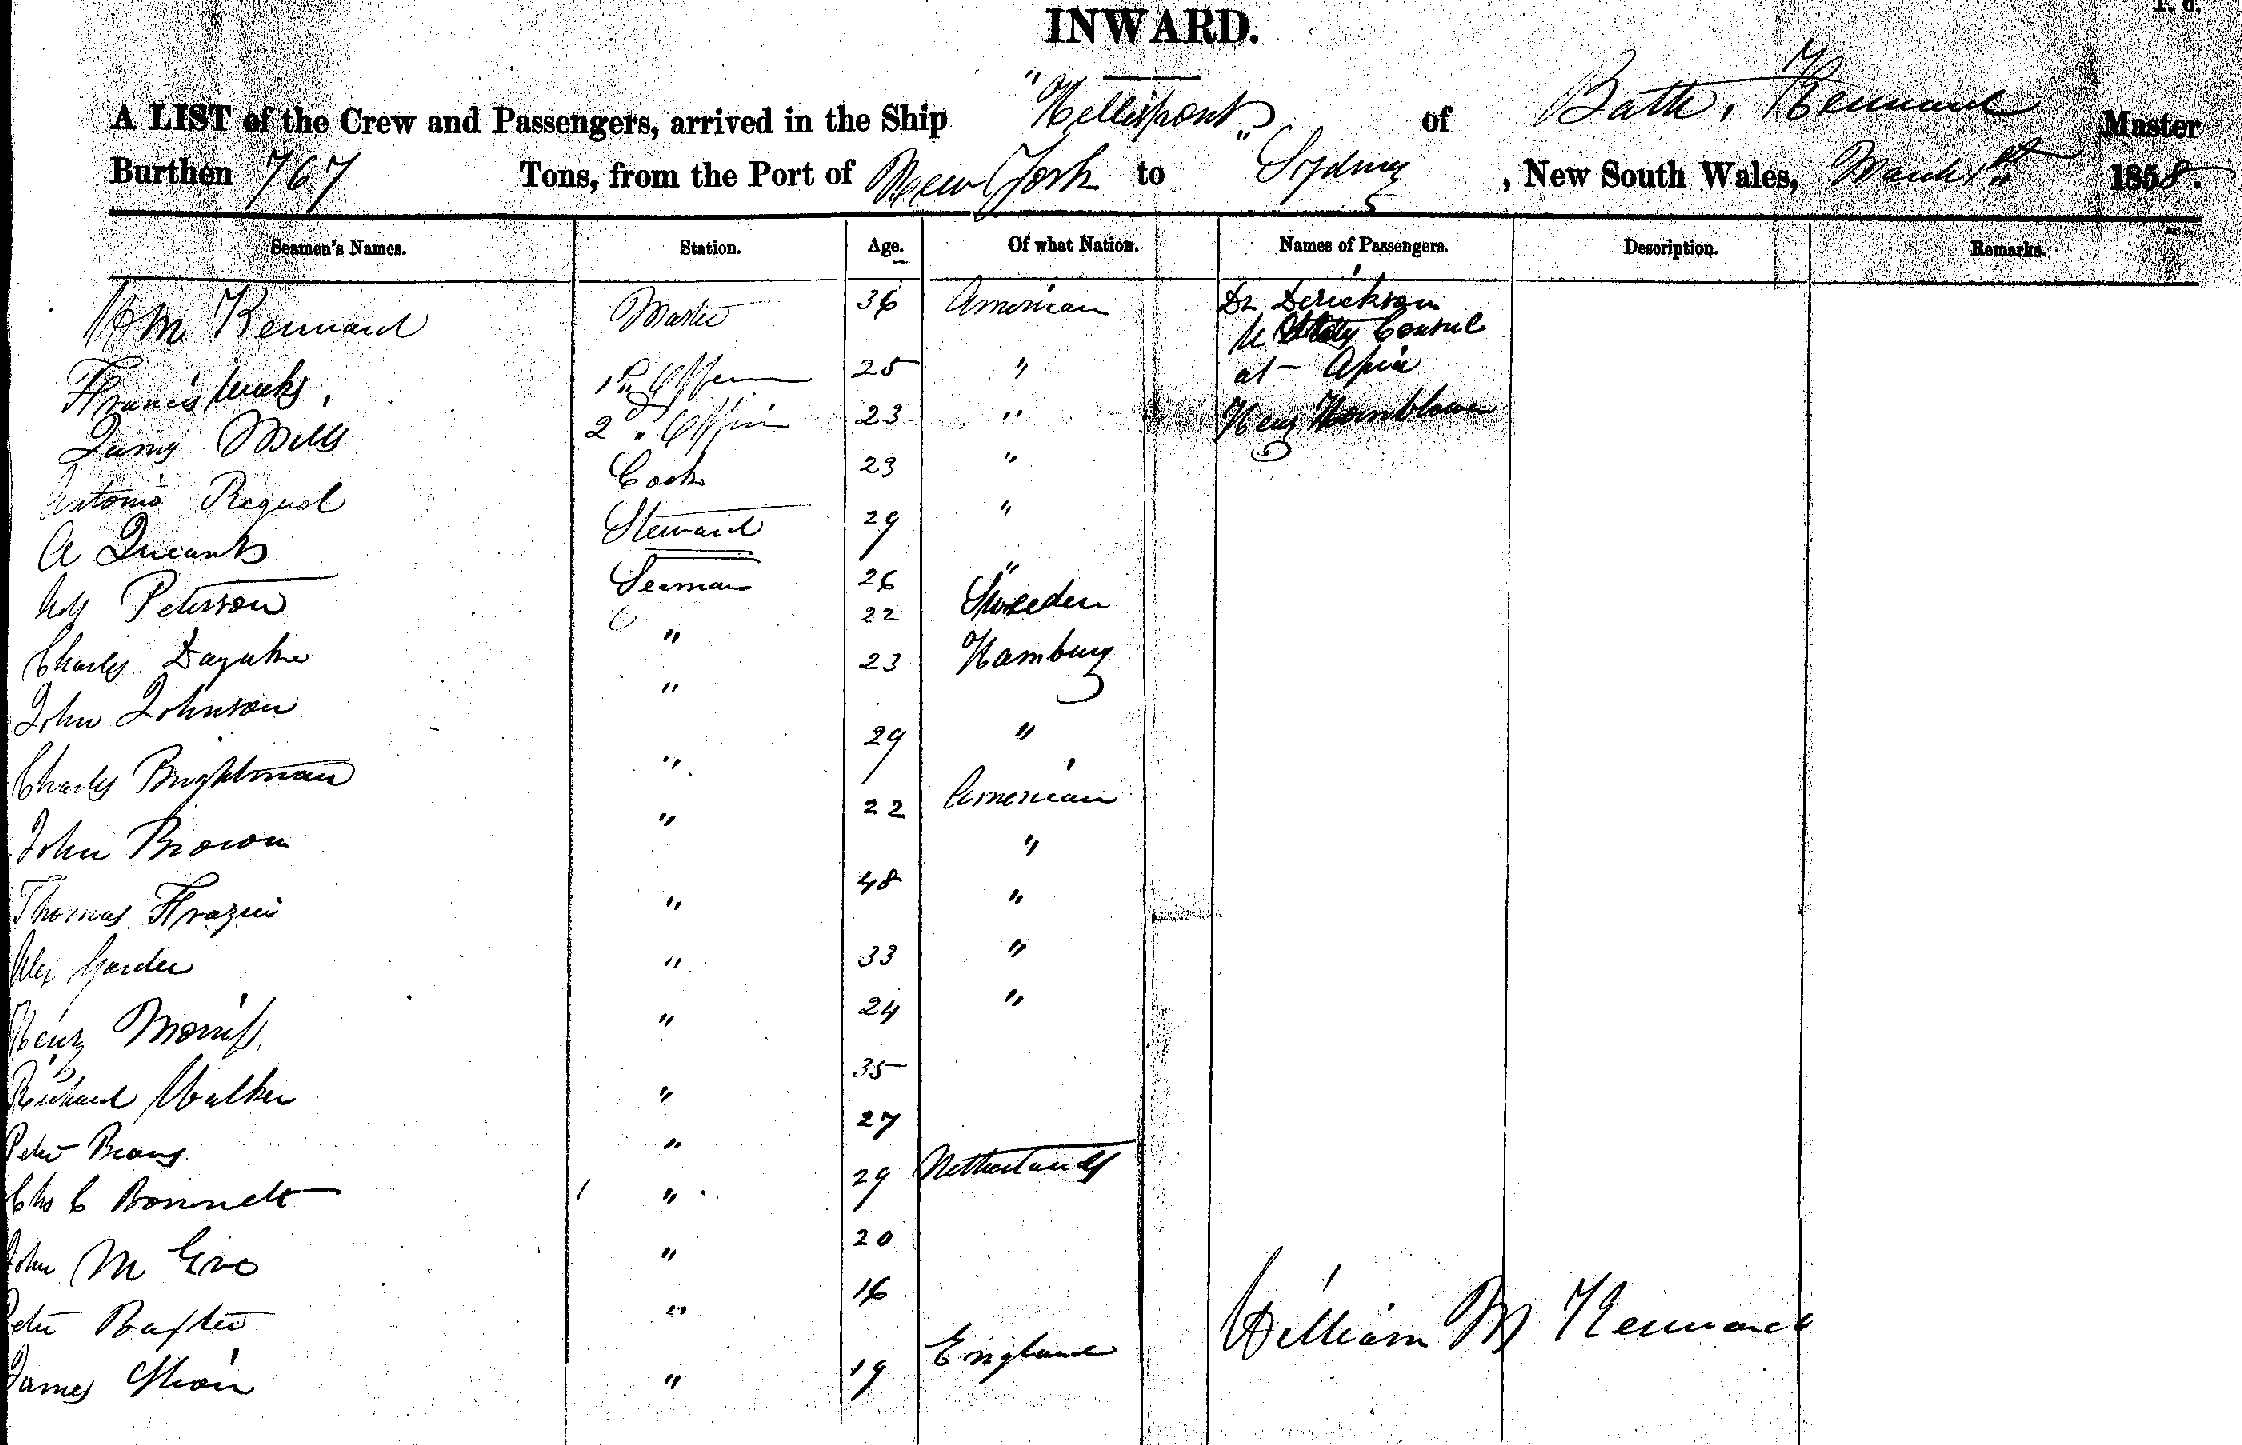 INWARD.
A LIST of the Crew and Passengers, arrived in the Ship "Hellespont" of Bath, Kennard Master
Burthen 767 Tons, from the Port of New York to Sydney, New South Wales, March 1st 1858.
Seamen's Names. Station. Age. Of what Nation. Names of Passengers. Description. Remarks.
Wm Kennard Master 36 American Dr Derickson
U States Consul
Francis Weeks 1st Officer 25 " at Apia
James Mills 2nd Officer 23 " Henry Hornblower
Antonio Cook 23 "
A Steward 29 "
Peterson Seaman 26 "
22 Sweden
Charles " 23 Hamburg
John Johnson "
Charles Brightman " 29 "
John Brown " 22 American
"
Thomas Frazier " 48 "
Alex " 33 "
Henry Morris " 24 "
Richard Walker " 35
Peter " 27
Chs C Bonnett " 29 Netherlands
John M " 20
Peter Baxter " 16
James " 19 England
William M Kennard